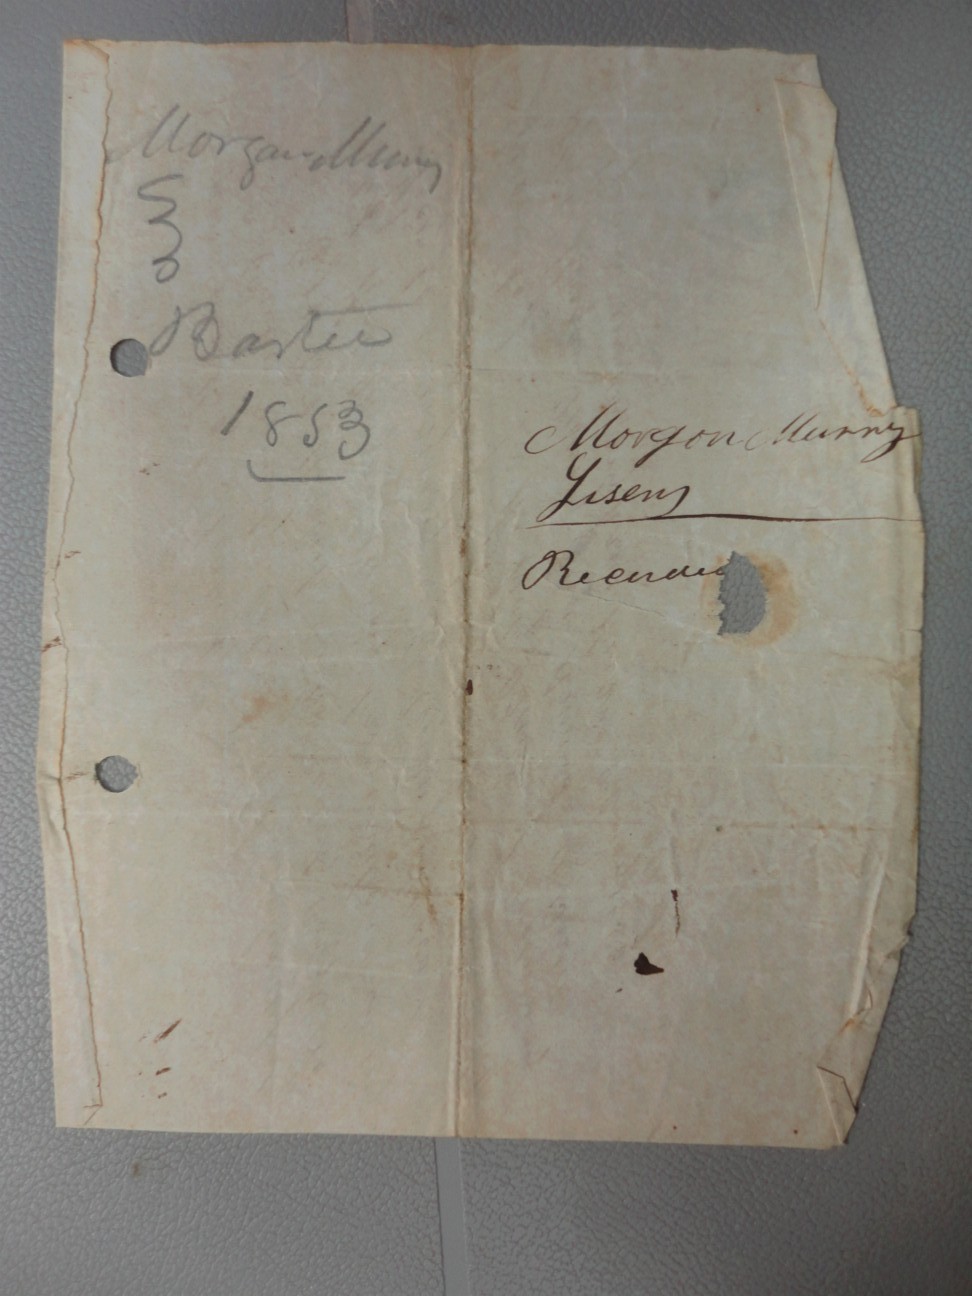 Morgan Murry
&
Bastee
1853
Morgon Murry
Lisens
Recorde